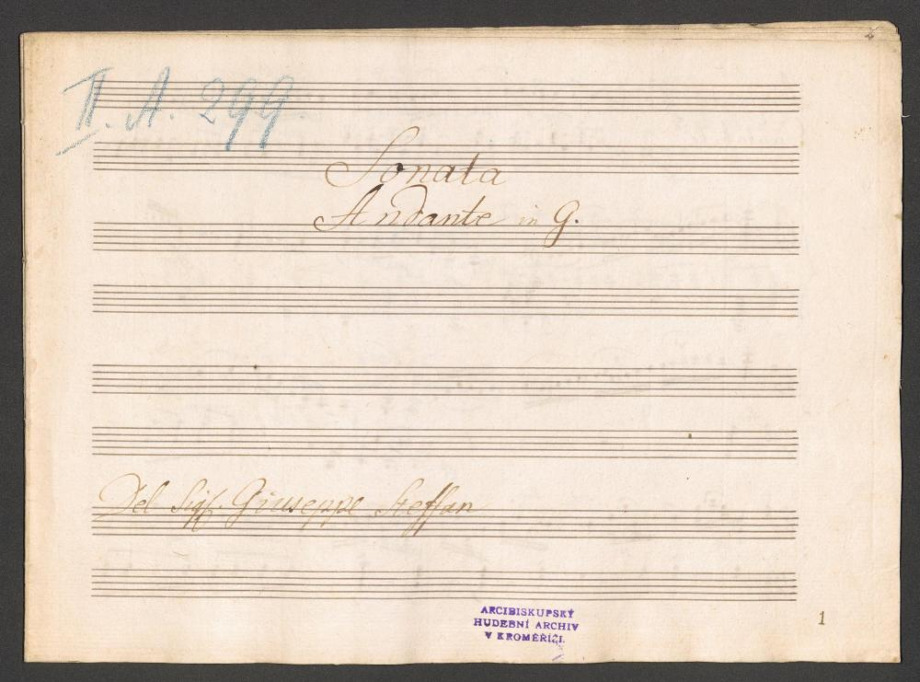 II. A. 299
Sonata
Andante in G.
Del Sigr. Giuseppe Steffan
ARCIBISKUPSKÝ
HUDEBNÍ ARCHIV
V KROMĚŘÍŽI.
1